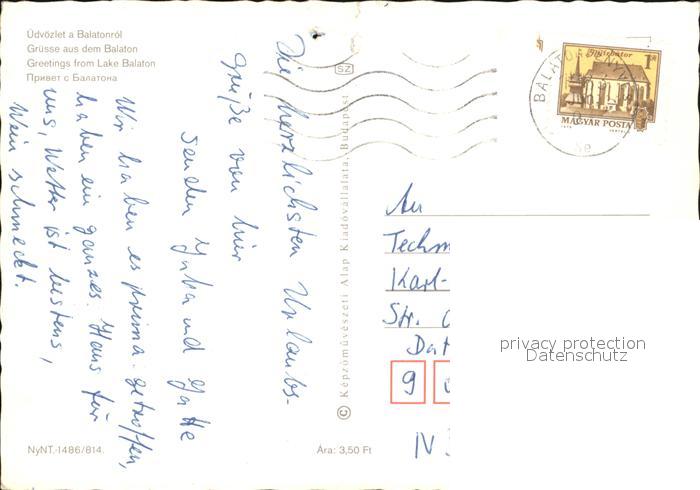 Üdvözlet a Balatonról
Grüsse aus dem Balaton
Greetings from Lake Balaton
Привет с Балатона
Die herzlichsten Urlaubs-
grüße von hier
senden Jutta und Gatte
Wir haben es prima getroffen,
haben ein ganzes Haus für
uns, Wetter ist bestens,
Wein schmeckt.
NyNT.-1486/814.
Ára: 3,50 Ft
SZ
© Képzőművészeti Alap Kiadóvállalata, Budapest
Nyírbátor
1 Ft
MAGYAR POSTA
BALATON
An
Techn
Karl-
Str.
Dat
9
IV
privacy protection
Datenschutz